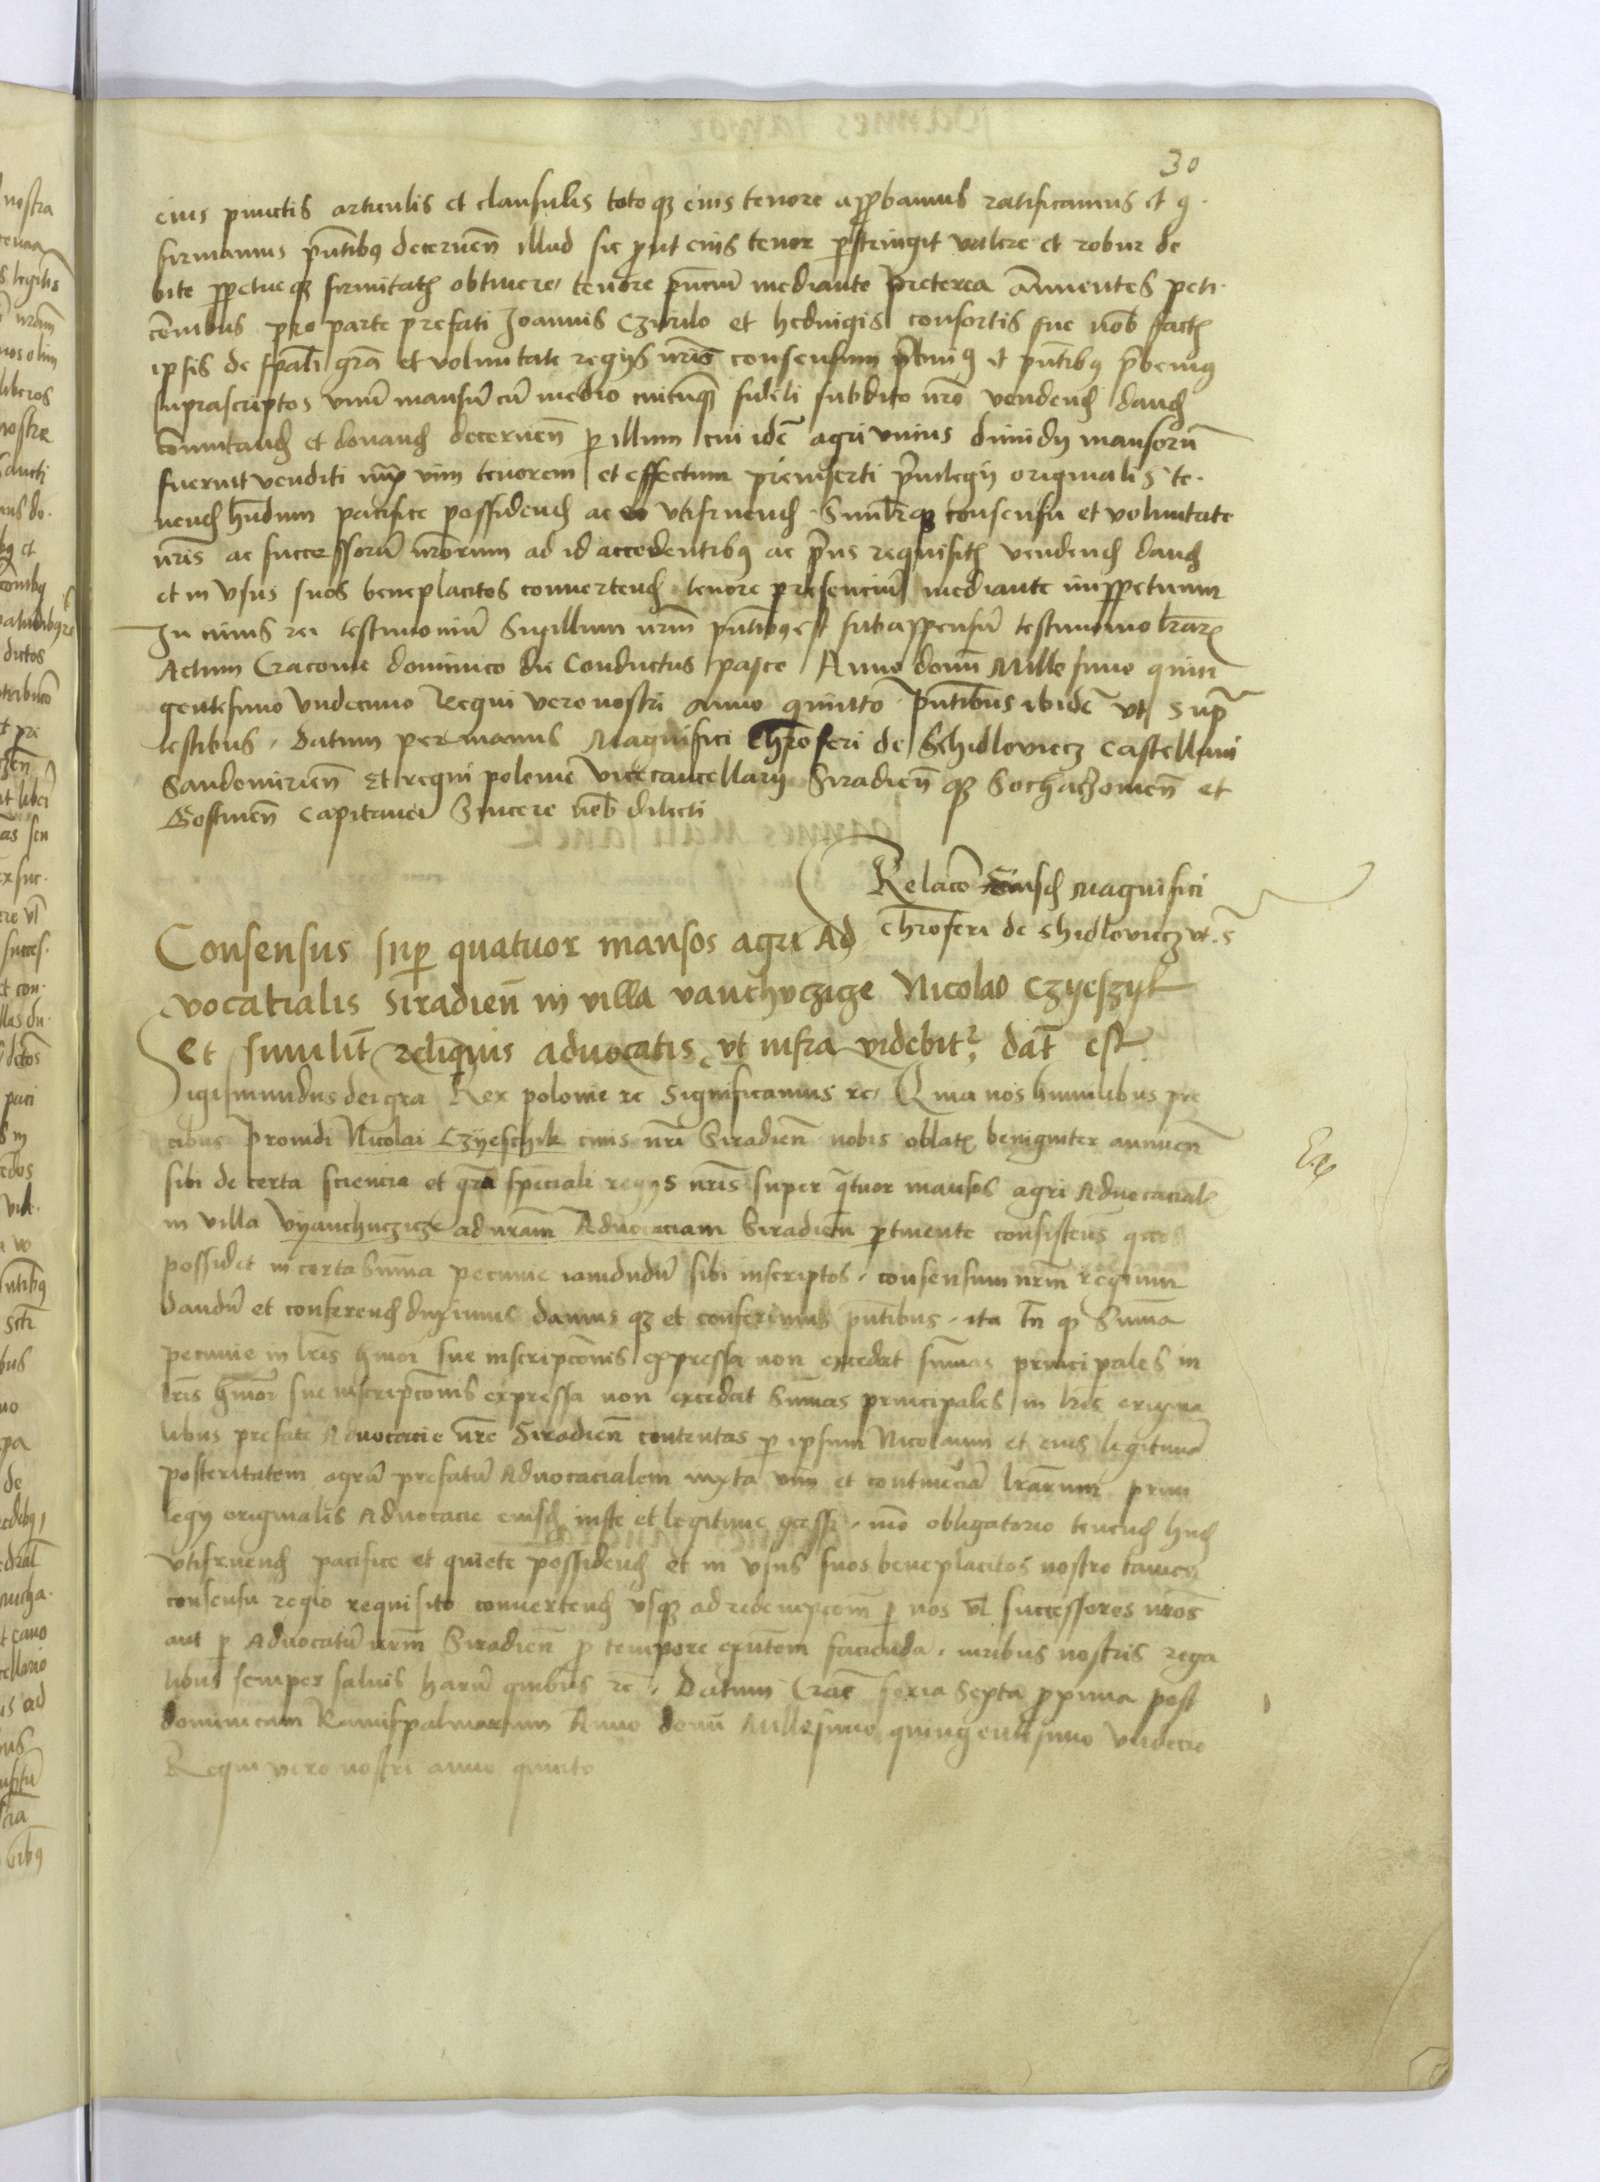 30
eius punctis articulis et clausulis totoqȝ eius tenore approbamus ratificamus et ꝯ
firmamus pñtibꝰ decernen̄ illud sic put eius tenor pstringit valere et robur de
bite ppetueqȝ firmitatꝭ obtinere tenore pñciũ mediante Preterea Annuentes peti
cõnibus pro parte prefati Joannis Czurilo et hedvigis consortis sue nob̄ factꝭ
ipsis de spãli grã et voluntate regijs nr̃is consensum et pñtibꝰ
suprascriptos vnũ mansũ cũ medio cuicũqȝ fideli subdito nr̃o vendend dand
cõmutand et donand decernen̄ p illum cui idẽ agri vnius dimidij mansorũ
fuerint venditi iuxta vim tenorem et effectum preinserti priuilegij originalis te
nend hñdum pacifice possidend ac vtifruend consensu et voluntate
nr̃is ac successorũ nr̃orum ad id accedentibꝰ ac prius requisitꝭ vendend dand
et in vsus suos beneplacitos convertend tenore presenciũ mediante imppetuum
In cuius rei testimoniũ Sigillum nr̃m pñtibꝰ est subappensũ testimonio lr̃arꝭ
Actum Cracovie dominico die Conductus pasce Anno domī Millesimo quin
gentesimo vndecimo Regni vero nostri anno quinto pñtibus ibidẽ vt supᵃ
testibus. Datum per manus Magnifici Chr̃oferi de Schidloviecz Castellani
Sandomirien̄ et regni polonie vicecancellarij Siradien̄ qȝ Sochaczovien̄ et
Gostinen̄ Capitanei Sincere nob̄ dilecti
Relacõ eiusd Magnifici
Chr̃oferi de Schidloviecz vt s̃
Consensus sup quatuor mansos agri Ad
vocatialis Siradien̄ in villa vanchvczicze Nicolao Czyeszyk
et similit̃ reliquis advocatis vt infra videbitᵘʳ dat̃ est
Sigismundus dei gra Rex polonie rc̃ Significamus rc̃ Quia nos humilibus pre
cibus Prouidi Nicolai Czyeschik ciuis nr̃i Siradien̄ nobis oblatꝭ benigniter annuen̄
sibi de certa sciencia et grã speciali regijs nr̃is super qᵃtuor mansos agri Advocacialꝭ
in villa Vyanchvczicze ad nr̃am Advocaciam Siradien̄ ptinente consisten̄ quos
possidet in certa Sũma pecunie iamdudũ sibi inscriptos. consensum nr̃m regium
dandũ et conferend duximus damus qȝ et conferimus pñtibus. ita tñ qȝ Sũma
pecunie in lr̃is hmõi sue inscripcõnis expressa non excedat sũmas principales in
lr̃is hmõi sue inscripcõnis expressa non excedat Sũmas principales in lr̃is origina
libus prefate Advocacie nr̃e Siradien̄ contentas p ipsum Nicolaum et eius legitimã
posteritatem agrũ prefatũ Advocacialem iuxta vim et continenciã lr̃arum priui
legij originalis Advocacie eiusd iuste et legitime ꝯcess. mõ obligatorio tenend hñd
vtifruend pacifice et quiete possidend et in vsus suos beneplacitos nostro tamen
consensu regio requisito convertend vsqȝ ad redempcõem p nos vl̃ successores nr̃os
aut p Advocatũ nr̃m Siradien̄ p tempore exñtem facienda. iuribus nostris rega
libus semper salvis harũ quibus rc̃. Datum Cracẽ feria Sexta pxima post
dominicam Ramispalmarum Anno domī Millesimo quingentesimo vndecio
Regni vero nostri anno quinto